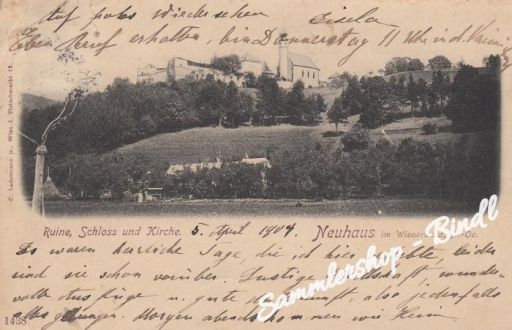 Auf frohes Wiedersehen Gisela
Eben Brief erhalten, bin Donnerstag 11 Uhr in d.
C. Ledermann jr., Wien I. Fleischmarkt 12.
Ruine, Schloss und Kirche. 5. April 1904 Neuhaus im Wienerwald, N.-Oe.
Es waren herrliche Tage, die ich hier leider
sind sie schon vorüber. Lustige Gesellschaft wunder-
volle Ausflüge u. gute also jedenfalls
alles gelungen. Morgen abends kommen wir heim
1438
Sammlershop-Bindl